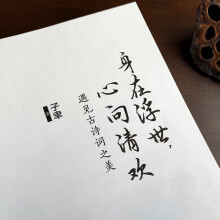 身在浮世，
心向清欢
遇见古诗词之美
子聿